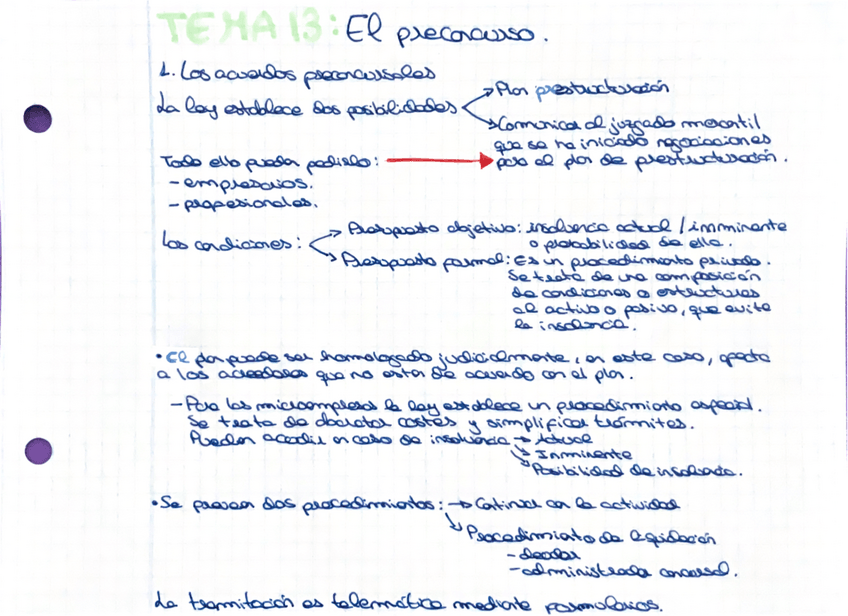 TEMA 13: El preconcurso.
1. Los acuerdos preconcursales
La ley establece dos posibilidades
Plan prestructuración
Comunicar al juzgado mercantil
que se ha iniciado negociaciones
para el plan de prestructuración.
Todo ello pueden pedirlo:
- empresarios.
- profesionales.
Las condiciones:
Presupuesto objetivo: insolvencia actual / inminente
o probabilidad de ella.
Presupuesto formal: Es un procedimiento privado.
Se trata de una composición
de condiciones o estructuras
al activo o pasivo, que evite
la insolvencia.
• El plan puede ser homologado judicialmente, en este caso, afecta
a los acreedores que no estan de acuerdo con el plan.
- Para las microempresas la ley establece un procedimiento especial.
Se trata de costes y simplificar trámites.
Pueden acudir en caso de insolvencia → Actual
Inminente
Posibilidad de insolvencia.
• Se preven dos procedimientos: → Continuar con la actividad
Procedimiento de liquidación
- deudor
- administrador concursal.
La tramitación es telemática mediante formularios.